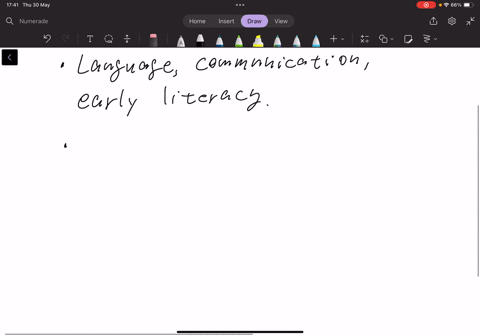 17:41 Thu 30 May
66%
Numerade
Home Insert Draw View
T
• Language, communication,
early literacy.
•